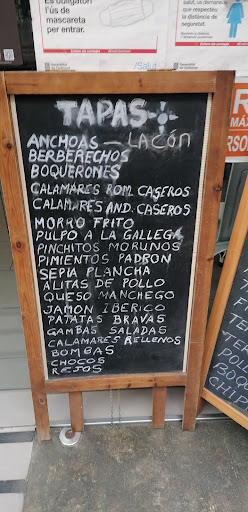 És obligatori
l'ús de
mascareta
per entrar.
Salut, us demanem
que respecteu
la distància de
seguretat.
/Salut
TAPAS
ANCHOAS — LACÓN
BERBERECHOS
BOQUERONES
CALAMARES ROM. CASEROS
CALAMARES AND. CASEROS
MORRO FRITO
PULPO A LA GALLEGA
PINCHITOS MORUNOS
PIMIENTOS PADRON
SEPIA PLANCHA
ALITAS DE POLLO
QUESO MANCHEGO
JAMON IBERICO
PATATAS BRAVAS
GAMBAS SALADAS
CALAMARES RELLENOS
BOMBAS
CHOCOS
REJOS